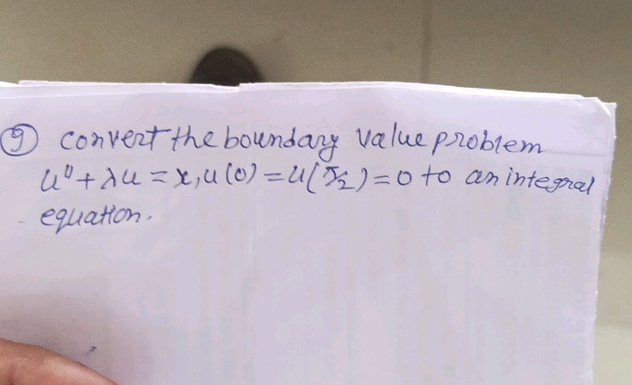 ⑨ convert the boundary value problem
u'' + λu = x, u(0) = u(π/2) = 0 to an integral
equation.